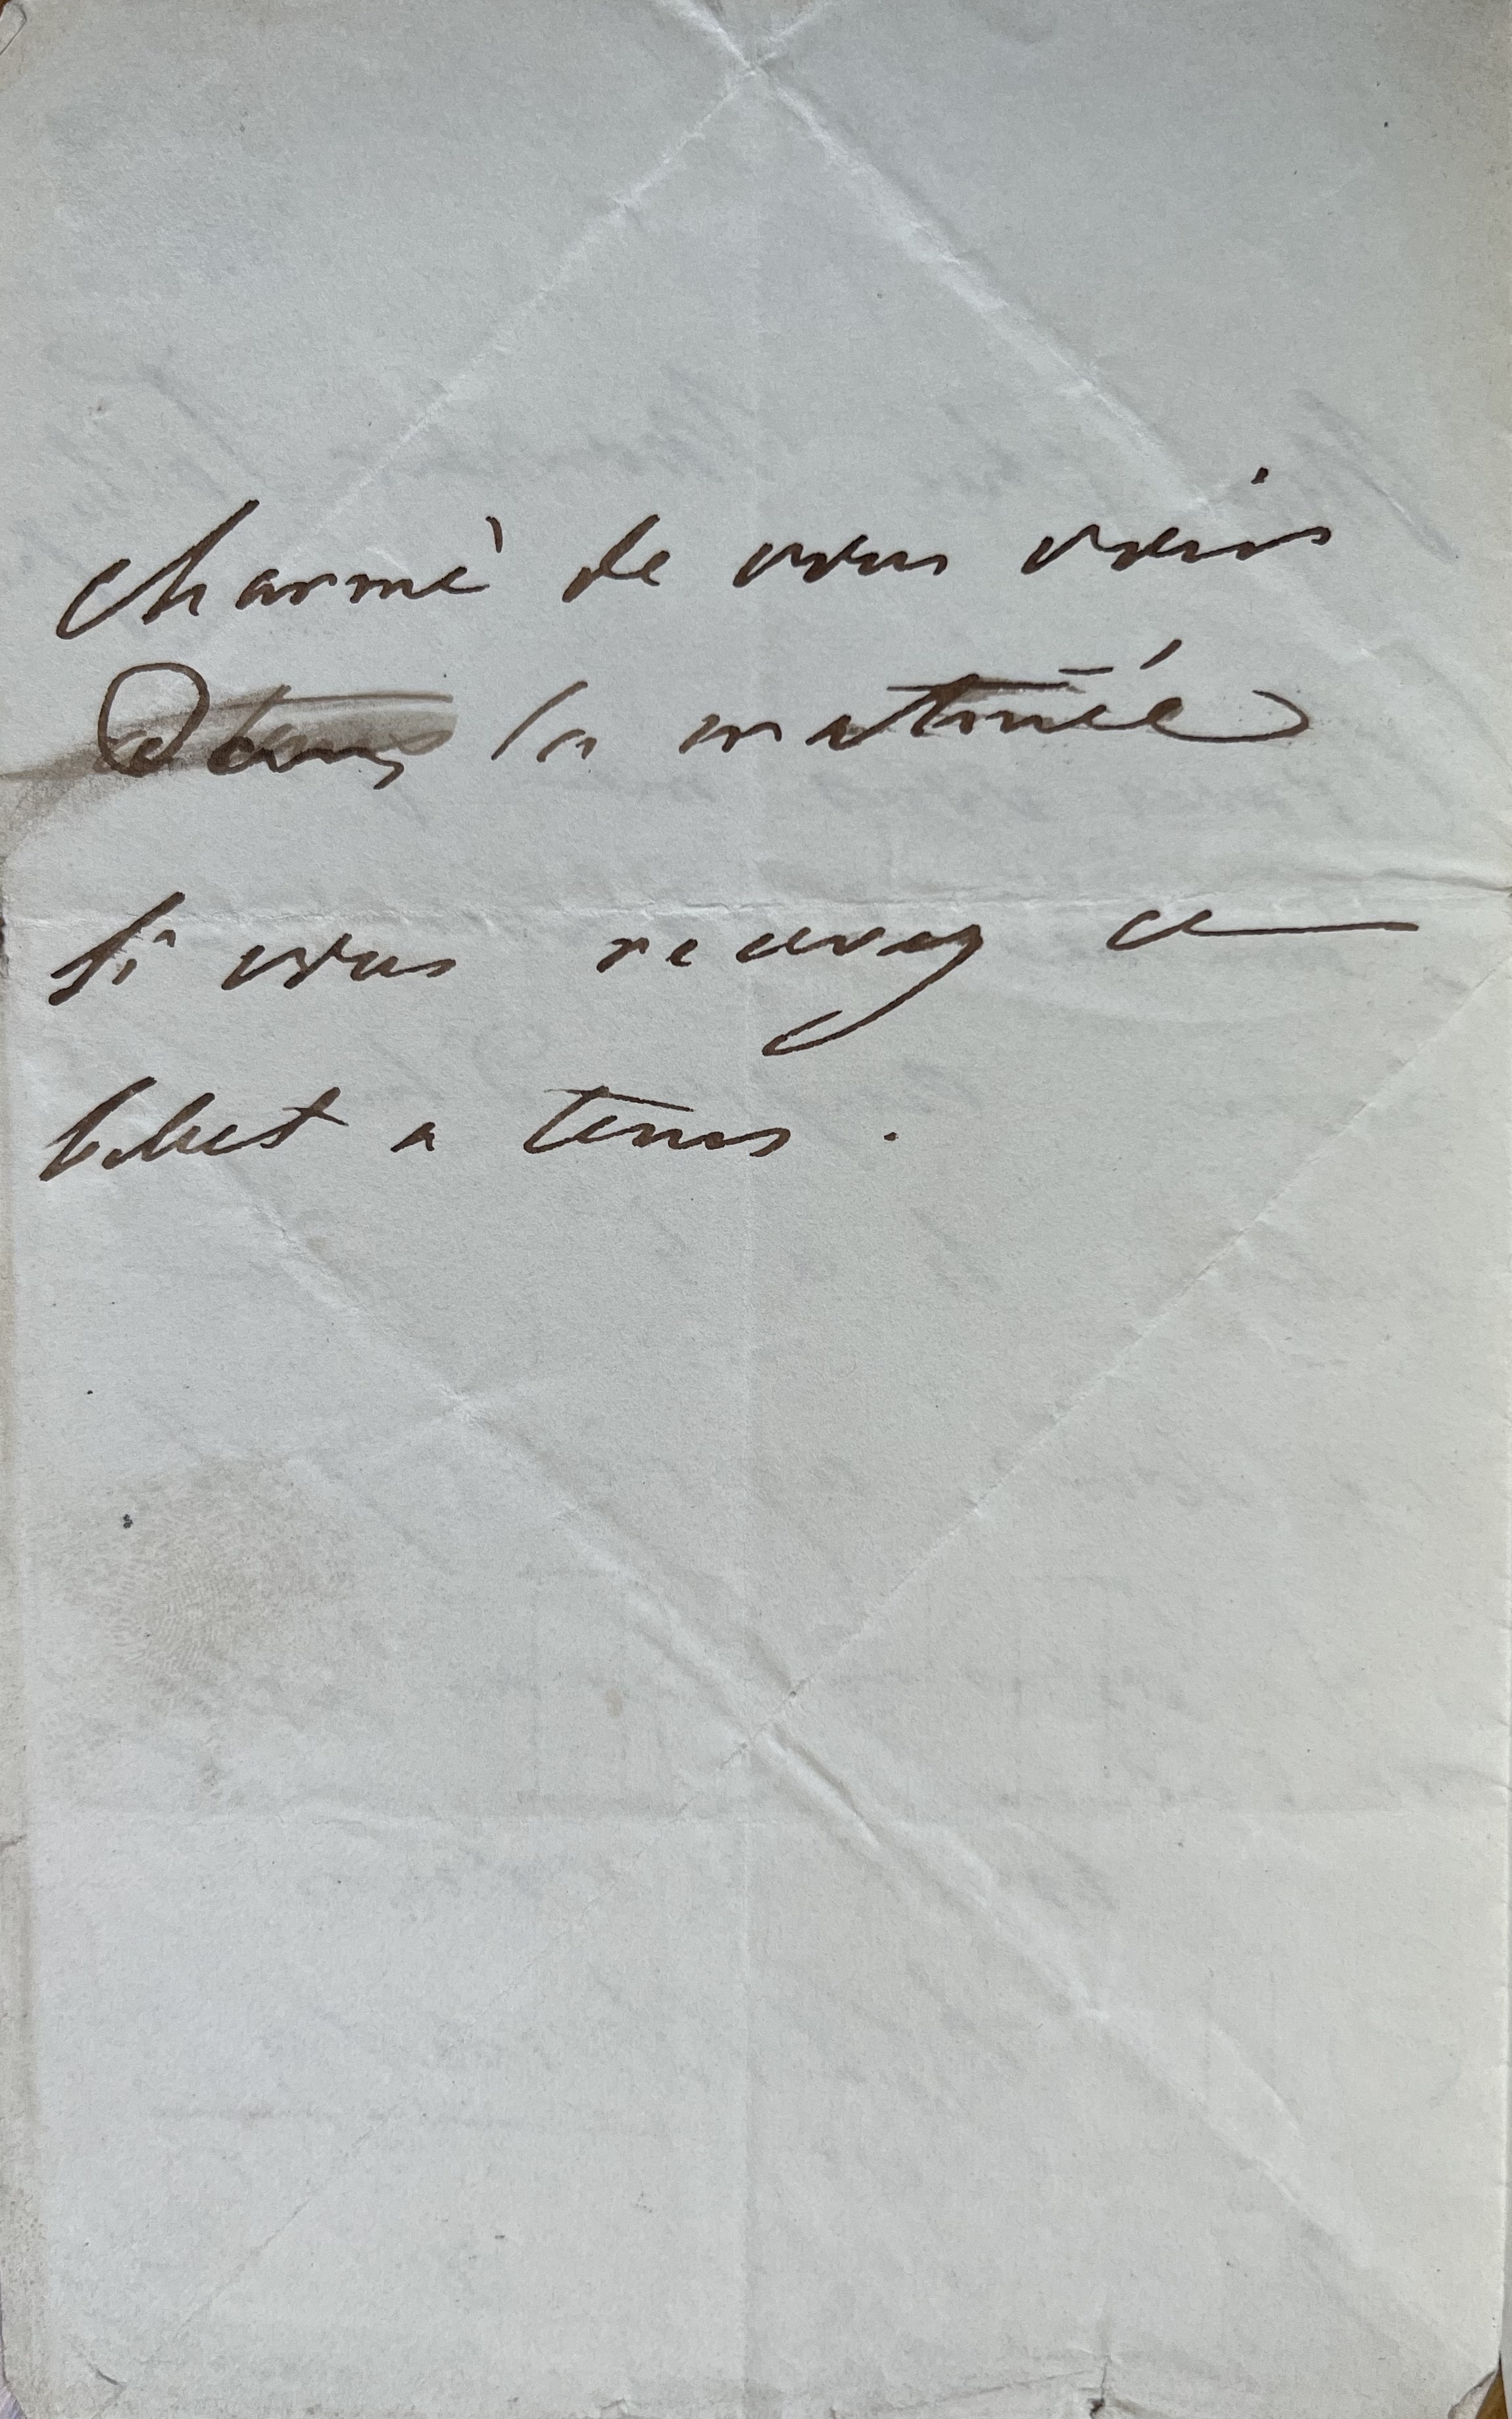 charmé de vous voir
dans la matinée
si vous recevez ce
billet a tems.